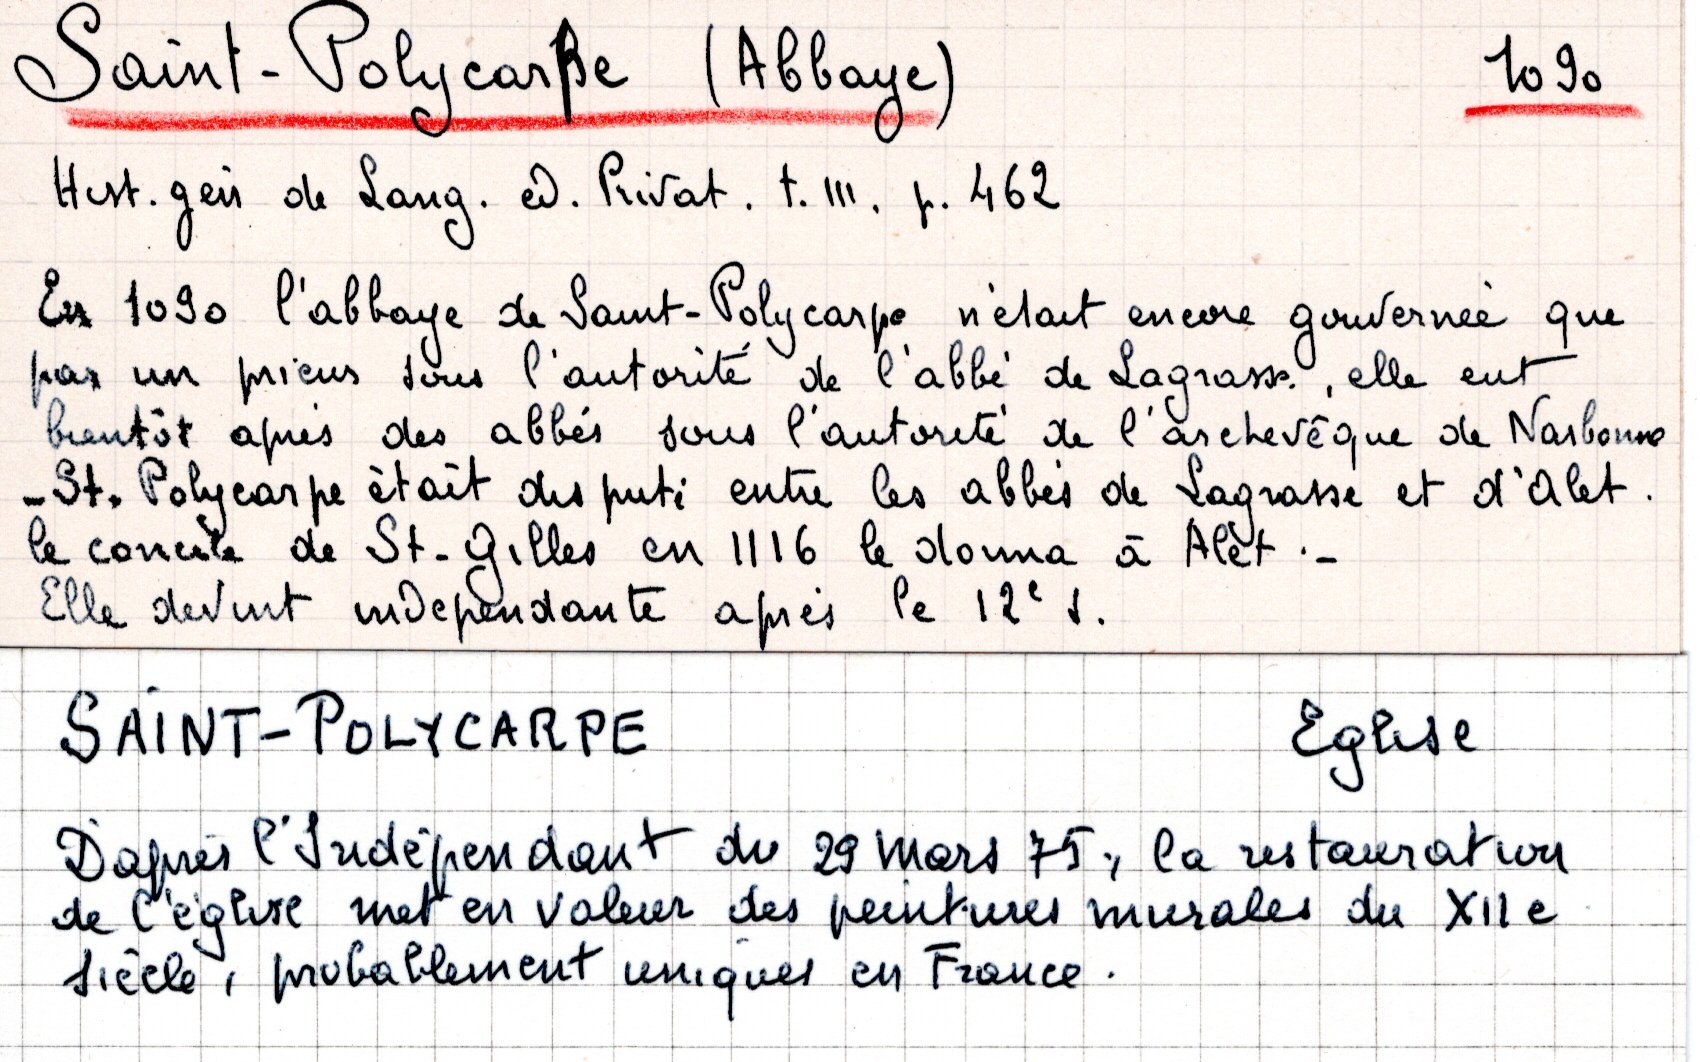 Saint-Polycarpe (Abbaye) 1090
Hist. gén de Lang. ed. Privat. t. III. p. 462
En 1090 l'abbaye de Saint-Polycarpe n'était encore gouvernée que
par un prieur sous l'autorité de l'abbé de Lagrasse, elle eut
bientôt après des abbés sous l'autorité de l'archevêque de Narbonne
- St. Polycarpe était disputé entre les abbés de Lagrasse et d'Alet.
le concile de St-Gilles en 1116 le donna à Alet .-
Elle devint indépendante après le 12e s.
SAINT-POLYCARPE Eglise
D'après l'Indépendant du 29 Mars 75, la restauration
de l'église met en valeur des peintures murales du XIIe
siècle, probablement uniques en France.